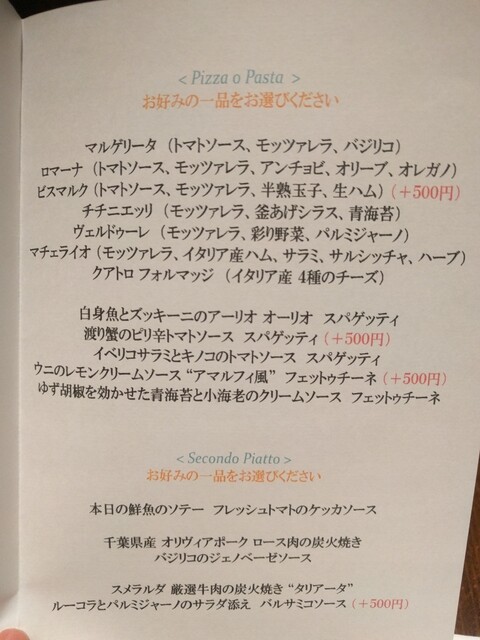 < Pizza o Pasta >
お好みの一品をお選びください
マルゲリータ (トマトソース、モッツァレラ、バジリコ)
ロマーナ (トマトソース、モッツァレラ、アンチョビ、オリーブ、オレガノ)
ビスマルク (トマトソース、モッツァレラ、半熟玉子、生ハム) (+500円)
チチニエッリ (モッツァレラ、釜あげシラス、青海苔)
ヴェルドゥーレ (モッツァレラ、彩り野菜、パルミジャーノ)
マチェライオ (モッツァレラ、イタリア産ハム、サラミ、サルシッチャ、ハーブ)
クアトロ フォルマッジ (イタリア産 4種のチーズ)
白身魚とズッキーニのアーリオ オーリオ スパゲッティ
渡り蟹のピリ辛トマトソース スパゲッティ (+500円)
イベリコサラミとキノコのトマトソース スパゲッティ
ウニのレモンクリームソース "アマルフィ風" フェットゥチーネ (+500円)
ゆず胡椒を効かせた青海苔と小海老のクリームソース フェットゥチーネ
< Secondo Piatto >
お好みの一品をお選びください
本日の鮮魚のソテー フレッシュトマトのケッカソース
千葉県産 オリヴィアポーク ロース肉の炭火焼き
バジリコのジェノベーゼソース
スメラルダ 厳選牛肉の炭火焼き "タリアータ"
ルーコラとパルミジャーノのサラダ添え バルサミコソース (+500円)